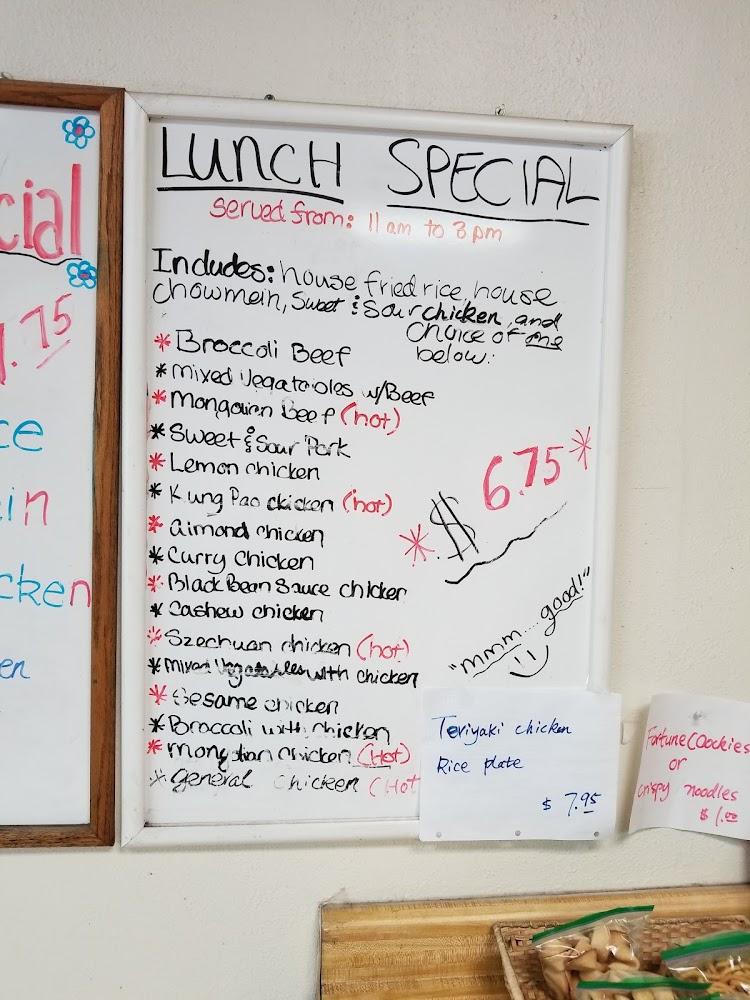 cial
.75
ce
in
cken
en
LUNCH SPECIAL
served from: 11 am to 3 pm
Includes: house fried rice, house
chowmein, Sweet & Sour chicken, and
choice of one
below:
* Broccoli Beef
* mixed Vegatables w/Beef
* Mongolian Beef (hot)
* Sweet & Sour Pork
* Lemon chicken
* Kung Pao chicken (hot)
* almond chicken
* Curry Chicken
* Black Bean Sauce chicken
* Cashew chicken
* Szechuan chicken (hot)
* mixed Vegetables with chicken
* Sesame chicken
* Broccoli with chicken
* mongolian chicken (Hot)
* General chicken (Hot
* $ 6.75 *
"mmm... good!"
Teriyaki chicken
Rice plate
$ 7.95
Fortune Coockies
or
crispy noodles
$ 1.00